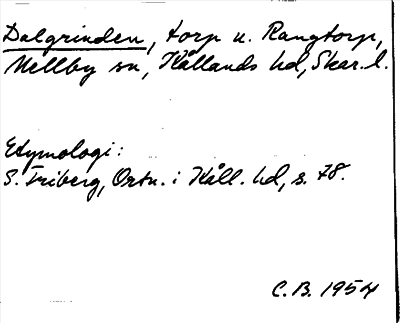 Dalgrinden, torp u. Rangtorp,
Mellby sn, Kållands hd, Skar. l.
Etymologi:
S. Friberg, Ortn. i Kåll. hd, s. 78.
C.B. 1954